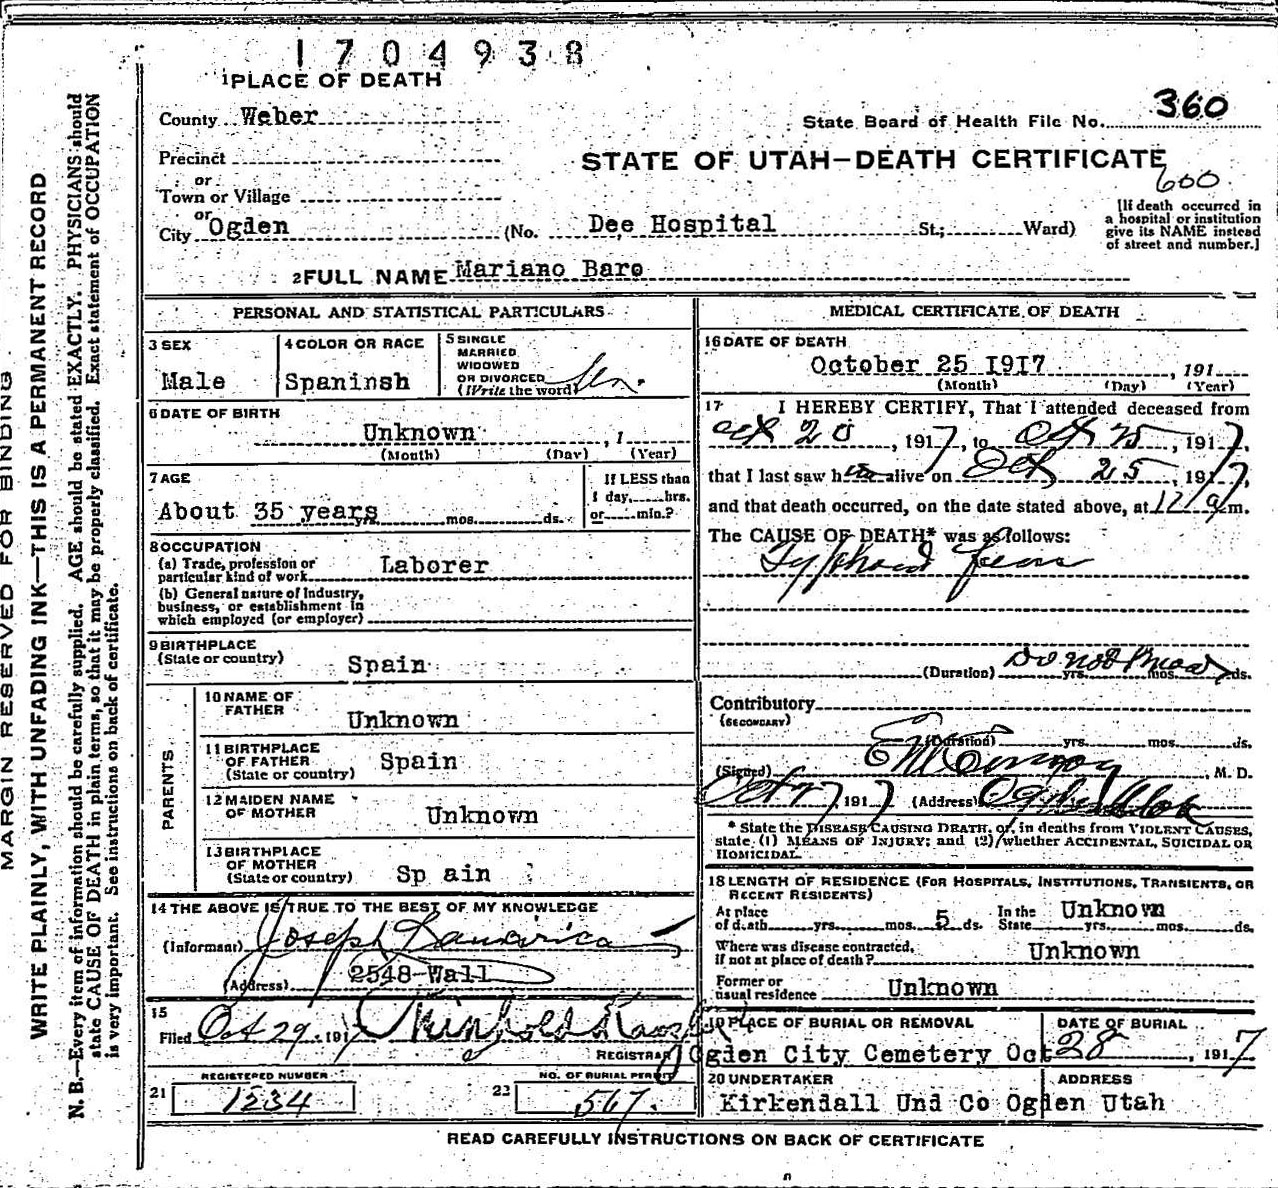 1704938
1 PLACE OF DEATH
County Weber
State Board of Health File No. 360
Precinct
STATE OF UTAH—DEATH CERTIFICATE
600
or
Town or Village
or
City Ogden (No. Dee Hospital St.; Ward)
[If death occurred in
a hospital or institution
give its NAME instead
of street and number.]
2 FULL NAME Mariano Baro
PERSONAL AND STATISTICAL PARTICULARS
3 SEX
Male
4 COLOR OR RACE
Spaninsh
5 SINGLE
MARRIED
WIDOWED
OR DIVORCED
(Write the word)
6 DATE OF BIRTH
Unknown , 1
(Month) (Day) (Year)
7 AGE
About 35 years yrs. mos. ds.
If LESS than
1 day, hrs.
or min.?
8 OCCUPATION
(a) Trade, profession or
particular kind of work Laborer
(b) General nature of Industry,
business, or establishment in
which employed (or employer)
9 BIRTHPLACE
(State or country) Spain
PARENTS
10 NAME OF
FATHER Unknown
11 BIRTHPLACE
OF FATHER Spain
(State or country)
12 MAIDEN NAME
OF MOTHER Unknown
13 BIRTHPLACE
OF MOTHER
(State or country) Sp ain
14 THE ABOVE IS TRUE TO THE BEST OF MY KNOWLEDGE
(Informant) Joseph
(Address) 2548 Wall
15
Filed Oct 29, 191
REGISTRAR
REGISTERED NUMBER
21 1234
NO. OF BURIAL PERMIT
22 567.
MEDICAL CERTIFICATE OF DEATH
16 DATE OF DEATH
October 25 1917 , 191
(Month) (Day) (Year)
17 I HEREBY CERTIFY, That I attended deceased from
Oct 20, 1917, to Oct 25, 1917,
that I last saw him alive on Oct 25, 1917,
and that death occurred, on the date stated above, at m.
The CAUSE OF DEATH* was as follows:
Typhoid fever
(Duration) Do not know yrs. mos. ds.
Contributory
(SECONDARY)
(Duration) yrs. mos. ds.
(Signed) , M. D.
1917 (Address) Ogden Utah
* State the DISEASE CAUSING DEATH, or, in deaths from VIOLENT CAUSES,
state (1) MEANS OF INJURY; and (2) whether ACCIDENTAL, SUICIDAL OR
HOMICIDAL.
18 LENGTH OF RESIDENCE (FOR HOSPITALS, INSTITUTIONS, TRANSIENTS, OR
RECENT RESIDENTS)
At place
of death yrs. mos. 5 ds.
In the
State Unknown yrs. mos. ds.
Where was disease contracted,
If not at place of death? Unknown
Former or
usual residence Unknown
19 PLACE OF BURIAL OR REMOVAL
Ogden City Cemetery
DATE OF BURIAL
Oct 28, 1917
20 UNDERTAKER
Kirkendall Und Co
ADDRESS
Ogden Utah
READ CAREFULLY INSTRUCTIONS ON BACK OF CERTIFICATE
MARGIN RESERVED FOR BINDING
WRITE PLAINLY, WITH UNFADING INK—THIS IS A PERMANENT RECORD
N. B.—Every item of information should be carefully supplied. AGE should be stated EXACTLY. PHYSICIANS should
state CAUSE OF DEATH in plain terms, so that it may be properly classified. Exact statement of OCCUPATION
is very important. See instructions on back of certificate.